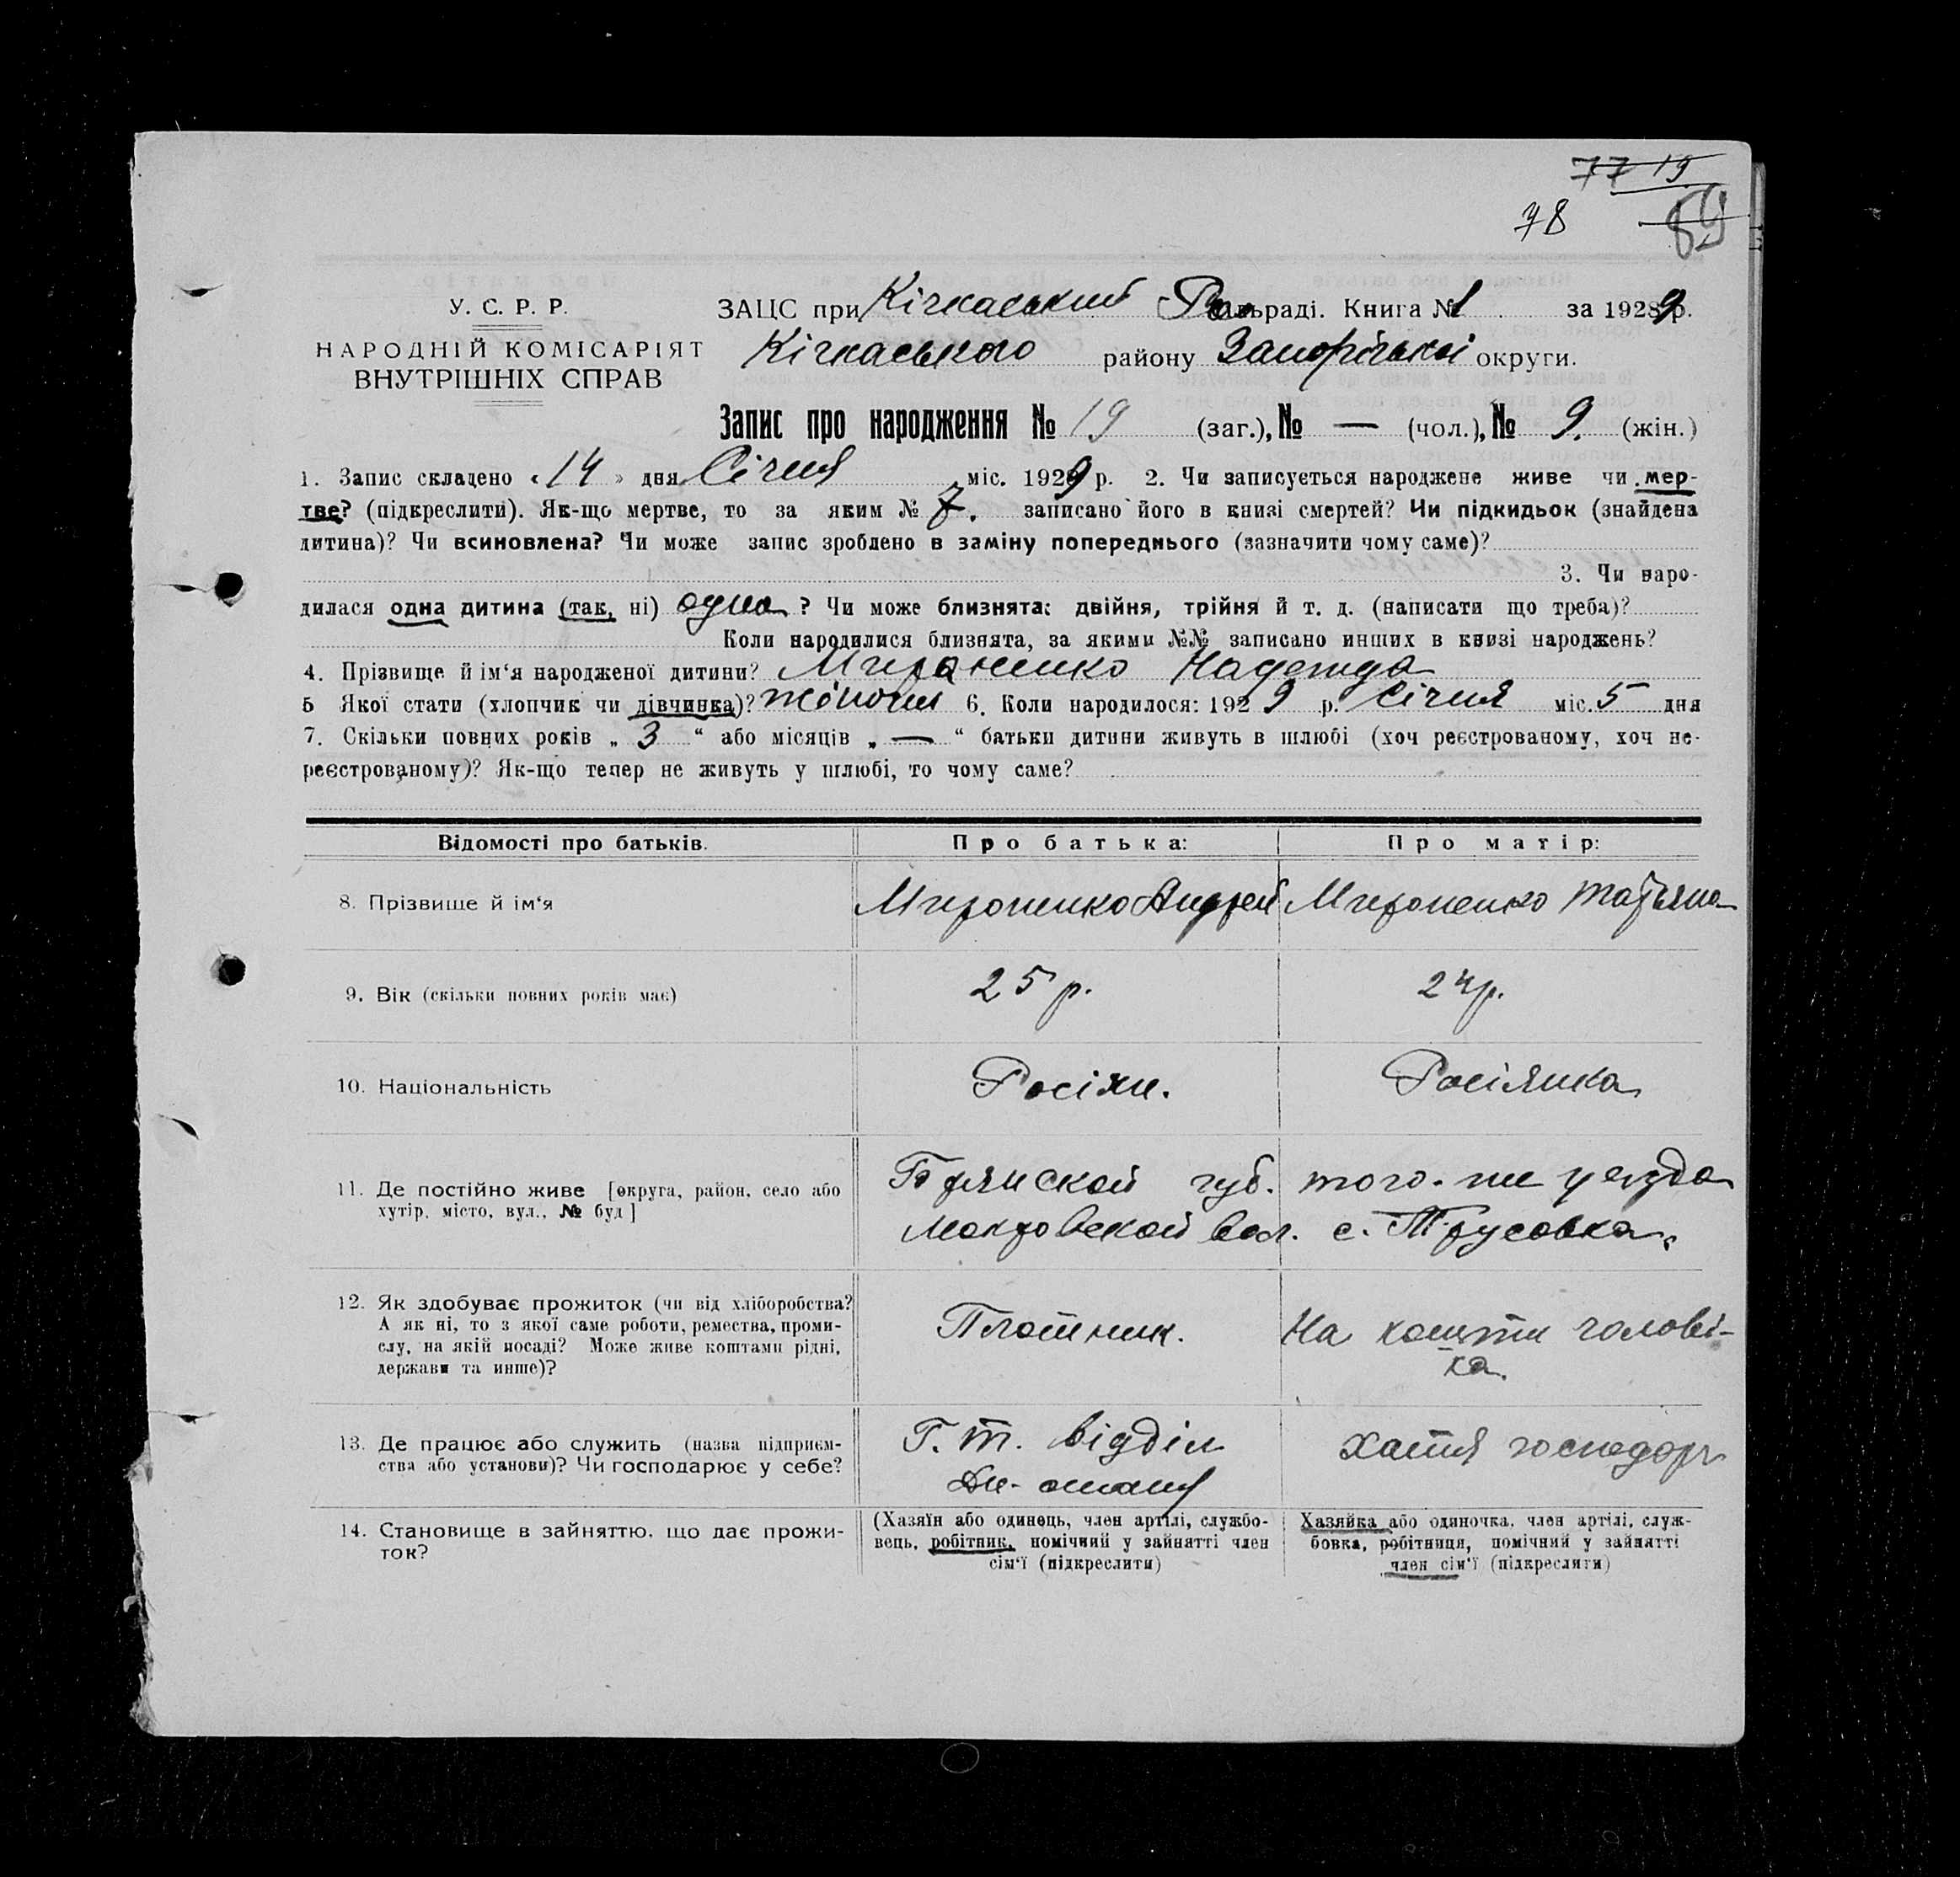 77 19
78 89
У. С. Р. Р.
НАРОДНІЙ КОМІСАРІЯТ
ВНУТРІШНІХ СПРАВ
ЗАЦС при Кічкаський Рай сільраді. Книга № 1 за 1929 р.
Кічкаського району Запорізької округи.
Запис про народження № 19 (заг.), № — (чол.), № 9. (жін.)
1. Запис складено « 14 » дня Січня міс. 1929 р. 2. Чи записується народжене живе чи мер-
тве? (підкреслити). Як-що мертве, то за яким № 7. записано його в книзі смертей? Чи підкидьок (знайдена
дитина)? Чи всиновлена? Чи може запис зроблено в заміну попереднього (зазначити чому саме)?
3. Чи наро-
дилася одна дитина (так, ні) одна ? Чи може близнята: двійня, трійня й т. д. (написати що треба)?
Коли народилися близнята, за якими №№ записано инших в книзі народжень?
4. Прізвище й ім‘я народженої дитини? Мироненко Надежда
5 Якої стати (хлопчик чи дівчинка)? жіночи 6. Коли народилося: 1929 р. Січня міс. 5 дня
7. Скільки повних років „ 3 “ або місяців „ — “ батьки дитини живуть в шлюбі (хоч реєстрованому, хоч не-
реєстрованому)? Як-що тепер не живуть у шлюбі, то чому саме?
Відомості про батьків. Про батька: Про матір:
8. Прізвище й ім‘я Мироненко Андрей Мироненко Татьяна
9. Вік (скільки повних років має) 25 р. 24 р.
10. Національність Росіян. Росіянка
11. Де постійно живе [округа, район, село або
хутір, місто, вул., № буд ]
Брянской губ. того-же уезда
Мокровской вол. с. Трусовка.
12. Як здобуває прожиток (чи від хліборобства?
А як ні, то з якої саме роботи, ремества, проми-
слу, на якій посаді? Може живе коштами рідні,
держави та инше)?
Плотник. На кошти чолові-
ка.
13. Де працює або служить (назва підприєм-
ства або установи)? Чи господарює у себе?
Г. т. відділ
Дн-
Хатня господарч
14. Становище в зайняттю, що дає прожи-
ток?
(Хазяїн або одинець, член артілі, службо-
вець, робітник, помічний у зайнятті член
сім‘ї (підкреслити)
Хазяйка або одиночка, член артілі, служ-
бовка, робітниця, помічний у зайнятті
член сім‘ї (підкреслити)